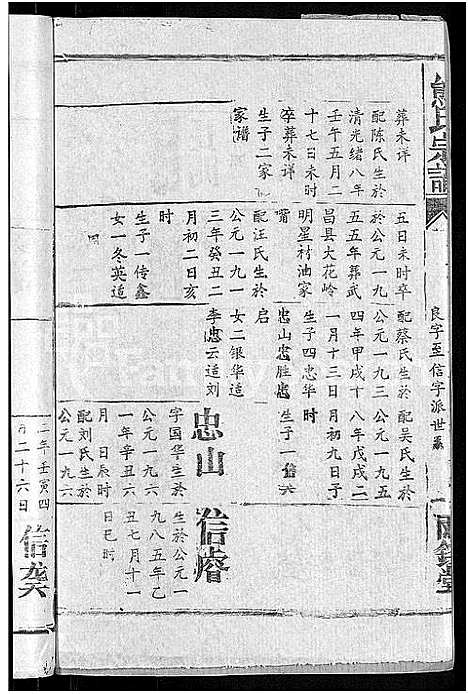 熊氏宗譜
良字至信字派世系
葬未详
配陈氏生於
清光绪八年
壬午五月二
十七日未时
卒葬未详
生子二家
家谱
五日未时卒
於公元一九
五五年葬武
昌县大花岭
明星村油家
嘴
配汪氏生於
公元一九一
三年癸丑二
月初二日亥
时
生子一传鑫
女一冬英适
配蔡氏生於
公元一九三
四年甲戌十
一月十三日
生子四忠华
忠山忠胜忠
启
女二银华适
李忠云适刘
配吴氏生於
公元一九五
八年戊戌二
月初九日子
时
生子一信兴
忠山
字国华生於
公元一九六
一年辛丑六
月 日辰时
配刘氏生於
公元一九六
二年壬寅四
月二十六日
信睿
生於公元一
九八五年乙
丑七月十一
日巳时
信龚